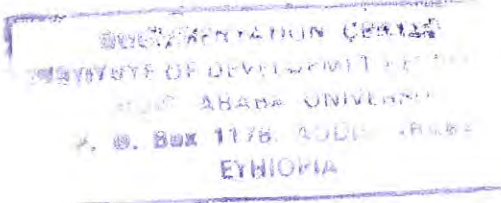 DOCUMENTATION CENTER
INSTITUTE OF DEVELOPMENT
ABABA UNIVERSITY
P. O. Box 1176, ADDIS ABABA
ETHIOPIA